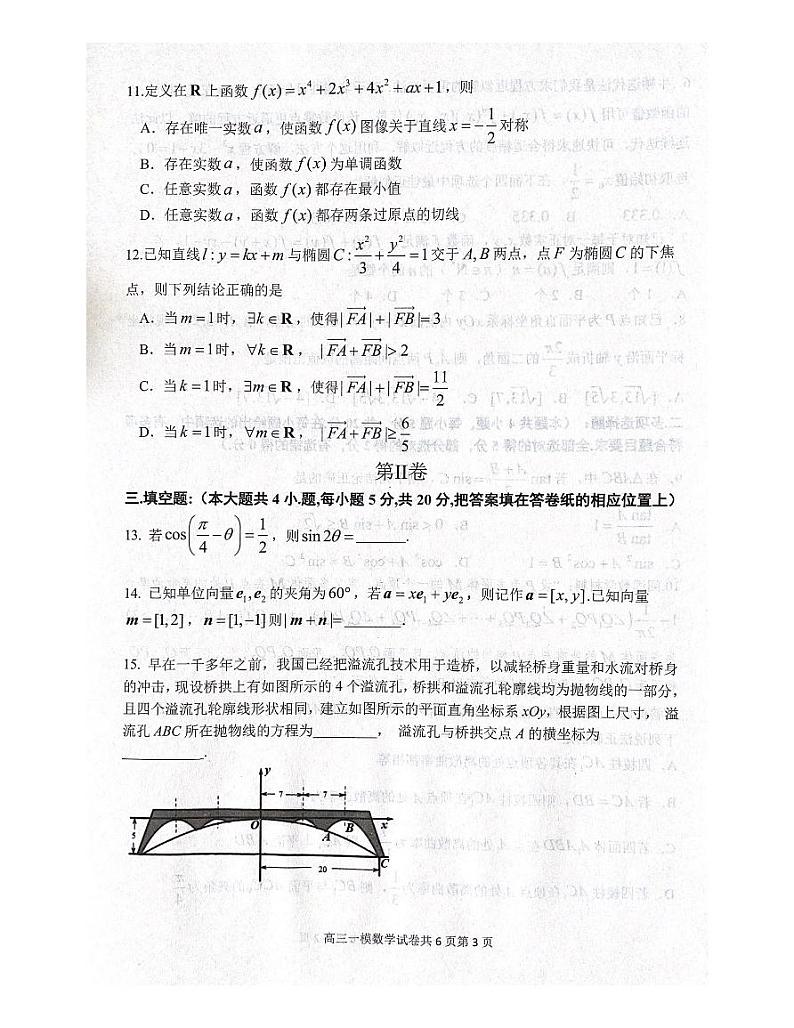 11.定义在 R 上函数 f(x) = x⁴ + 2x³ + 4x² + ax + 1，则
A．存在唯一实数 a，使函数 f(x) 图像关于直线 x = -1/2 对称
B．存在实数 a，使函数 f(x) 为单调函数
C．任意实数 a，函数 f(x) 都存在最小值
D．任意实数 a，函数 f(x) 都存两条过原点的切线
12.已知直线 l : y = kx + m 与椭圆 C : x²/3 + y²/4 = 1 交于 A, B 两点，点 F 为椭圆 C 的下焦
点，则下列结论正确的是
A．当 m = 1 时，∃k ∈ R，使得 |FA→| + |FB→| = 3
B．当 m = 1 时，∀k ∈ R， |FA→ + FB→| > 2
C．当 k = 1 时，∃m ∈ R，使得 |FA→| + |FB→| = 11/2
D．当 k = 1 时，∀m ∈ R， |FA→ + FB→| ≥ 6/5
第Ⅱ卷
三.填空题:（本大题共 4 小.题,每小题 5 分,共 20 分,把答案填在答卷纸的相应位置上）
13. 若 cos(π/4 - θ) = 1/2，则 sin 2θ = _______.
14. 已知单位向量 e₁, e₂ 的夹角为 60°，若 a = xe₁ + ye₂，则记作 a = [x, y].已知向量
m = [1,2]， n = [1,-1] 则 | m + n | = ________.
15. 早在一千多年之前，我国已经把溢流孔技术用于造桥，以减轻桥身重量和水流对桥身
的冲击，现设桥拱上有如图所示的 4 个溢流孔，桥拱和溢流孔轮廓线均为抛物线的一部分，
且四个溢流孔轮廓线形状相同，建立如图所示的平面直角坐标系 xOy，根据图上尺寸， 溢
流孔 ABC 所在抛物线的方程为_________， 溢流孔与桥拱交点 A 的横坐标为
___________.
y
7 7
O A B x
5
C
20
高三一模数学试卷共 6 页第 3 页